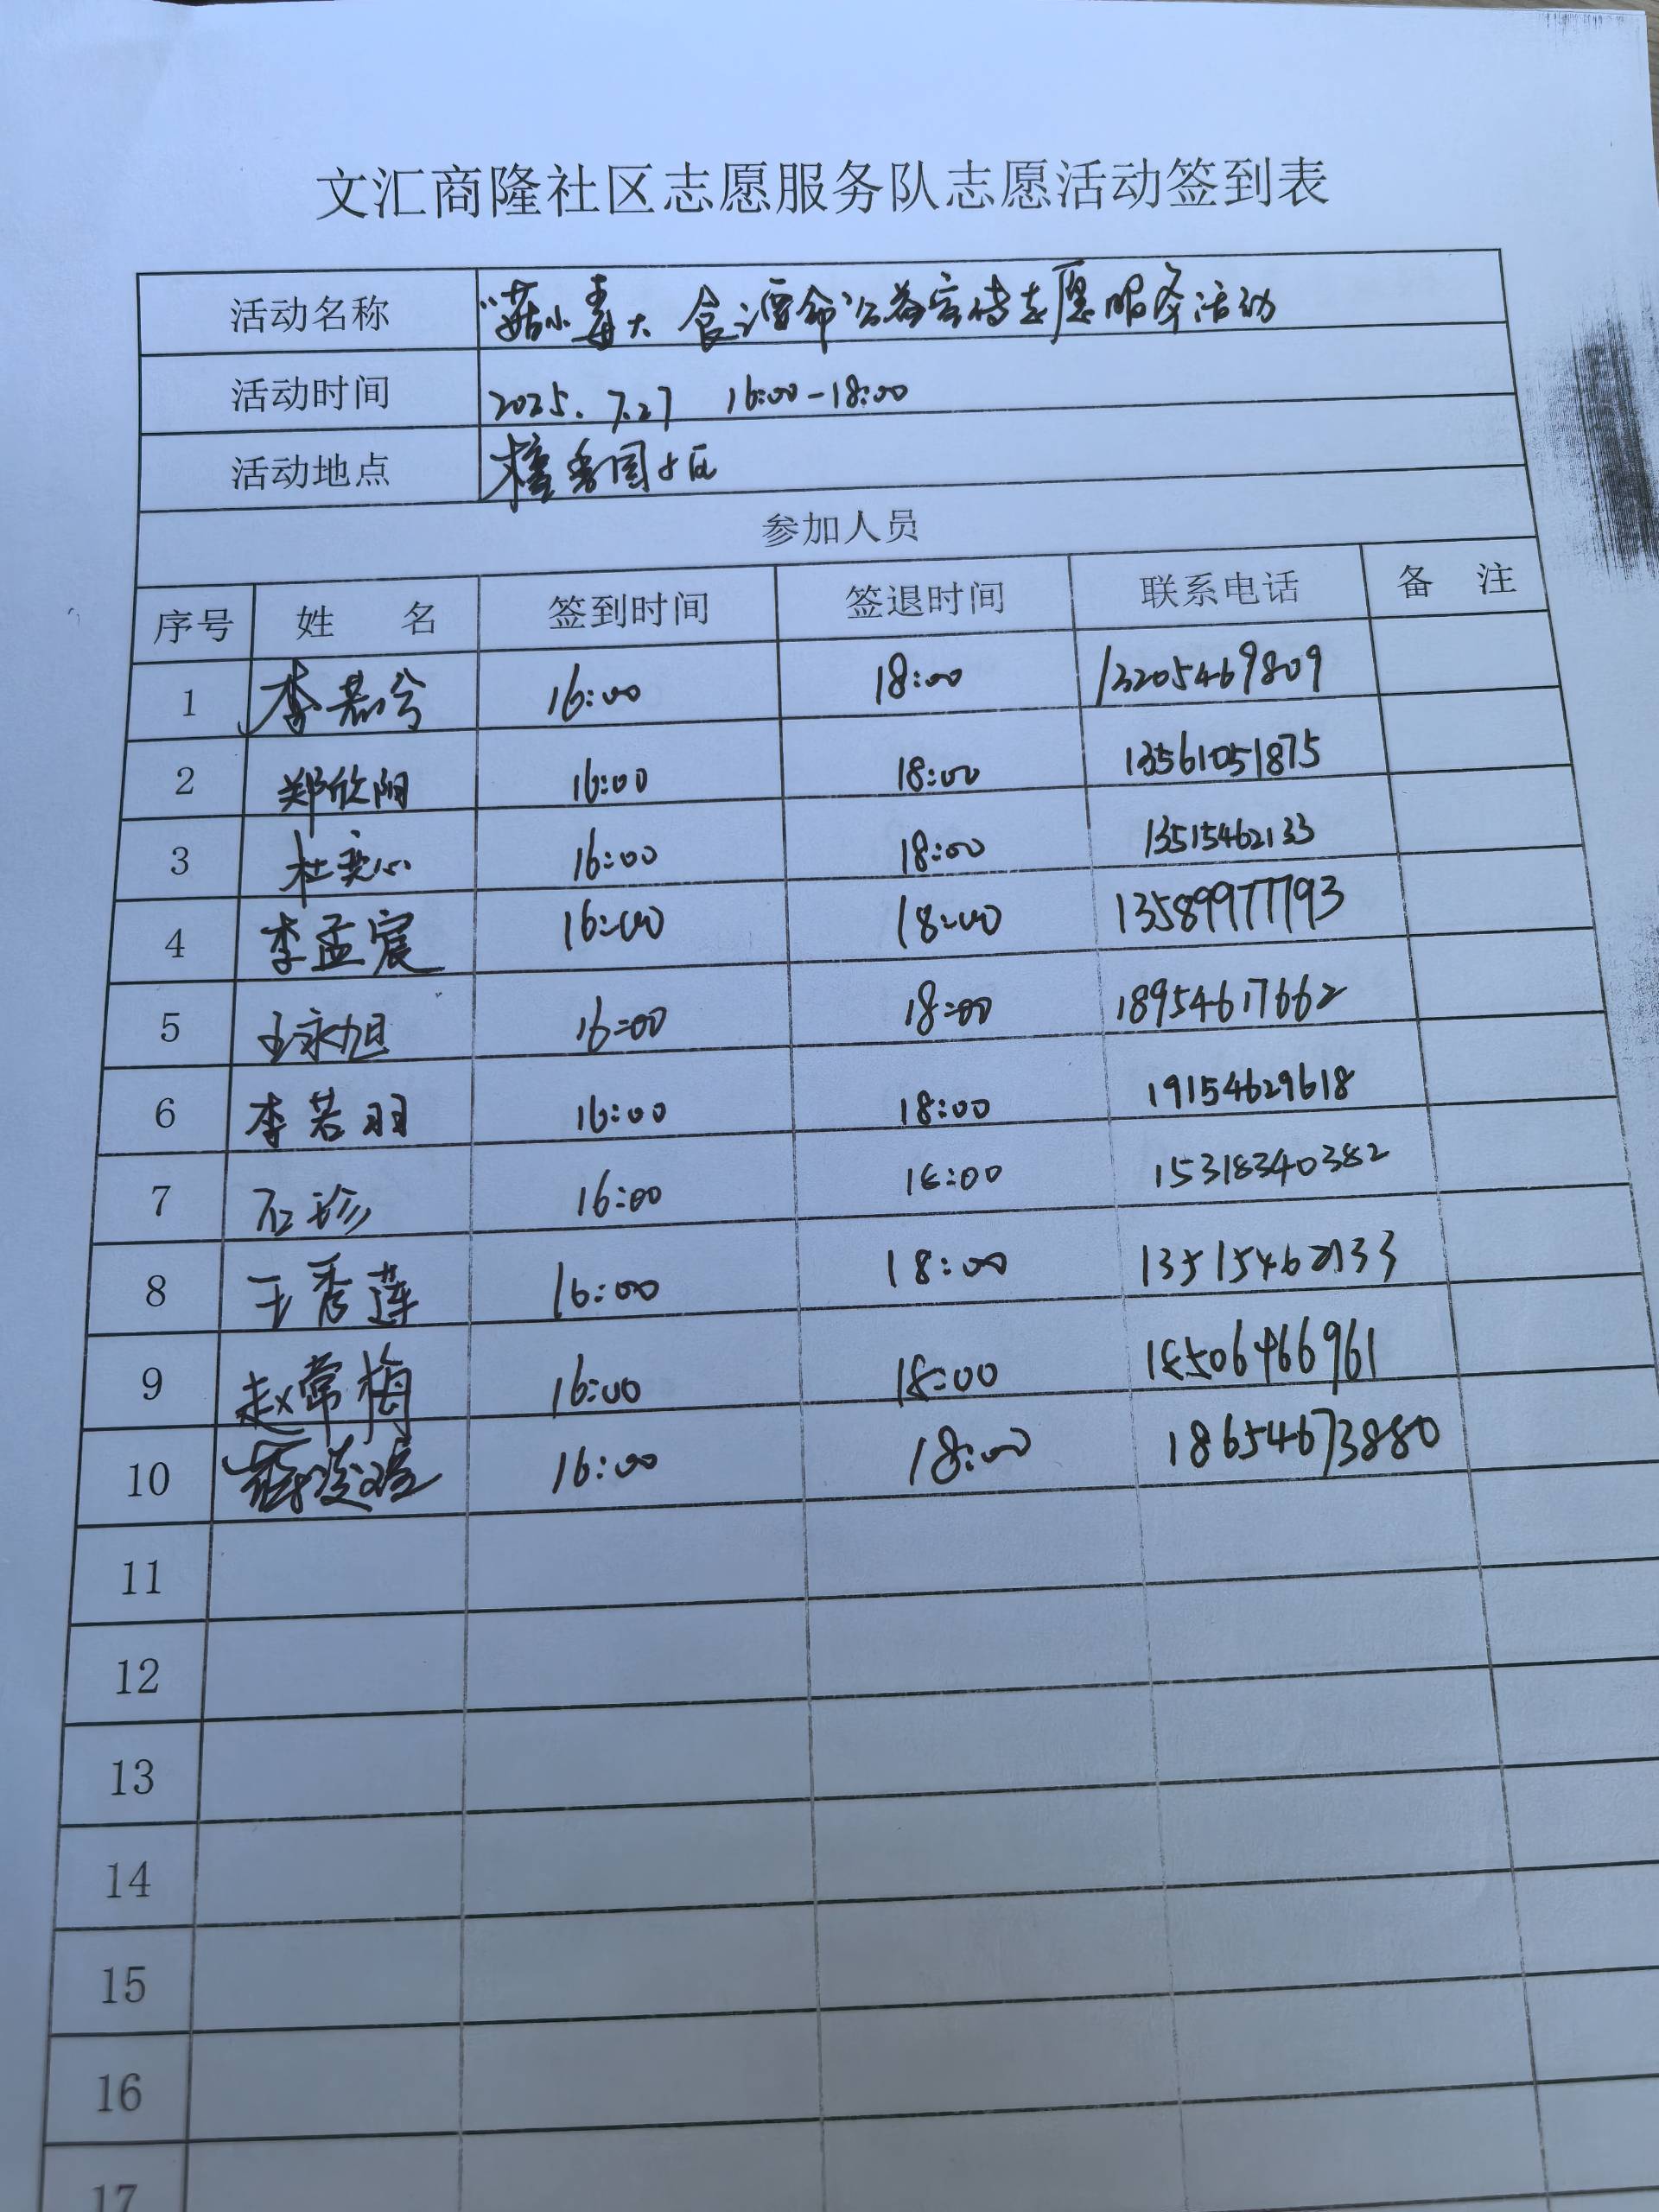 文汇商隆社区志愿服务队志愿活动签到表
活动名称 "菇小毒大 食之要命"公益宣传志愿服务活动
活动时间 2025.7.27 16:00-18:00
活动地点 檀香园小区
参加人员
序号 姓 名 签到时间 签退时间 联系电话 备 注
1 李若兮 16:00 18:00 13205469809
2 郑欣阳 16:00 18:00 13561051875
3 杜奕心 16:00 18:00 13515462133
4 李孟宸 16:00 18:00 13589977793
5 王永旭 16:00 18:00 18954617662
6 李若羽 16:00 18:00 19154629618
7 石珍 16:00 18:00 15318340382
8 王秀莲 16:00 18:00 13515462133
9 赵常梅 16:00 18:00 18506466961
10 16:00 18:00 18654673880
11
12
13
14
15
16
17